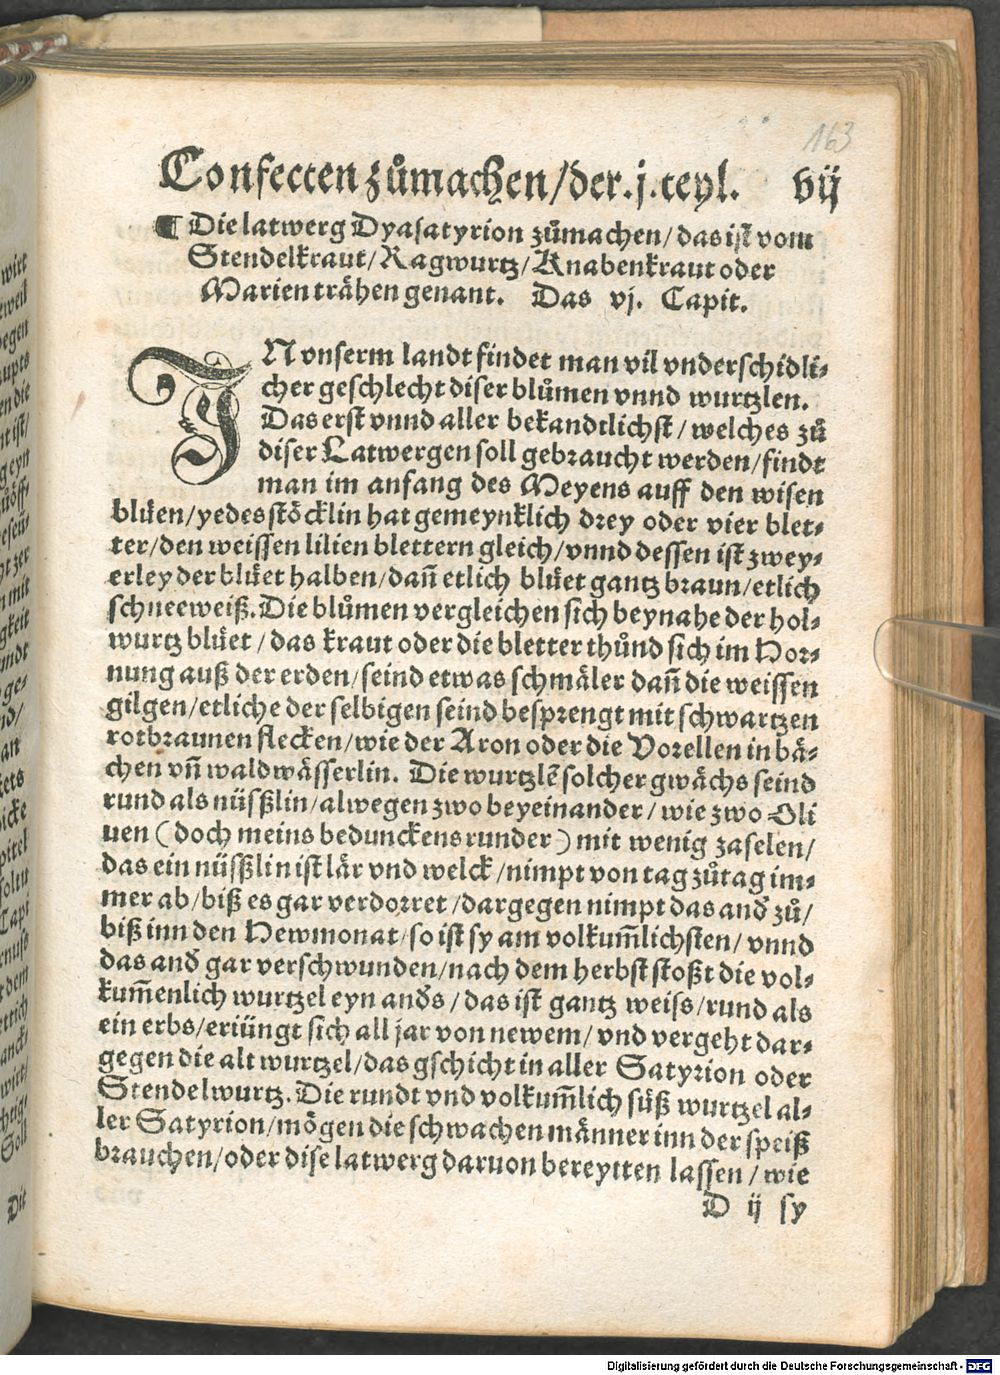 163
Confecten zůmachen/der.j.teyl. vij
¶ Die latwerg Dyasatyrion zůmachen/das ist vom
Stendelkraut/Ragwurtz/Knabenkraut oder
Marien trähen genant. Das vj. Capit.
IN vnserm landt findet man vil vnderschidli⸗
cher geschlecht diser blůmen vnnd wurtzlen.
Das erst vnnd aller bekandtlichst/welches zů
diser Latwergen soll gebraucht werden/findt
man im anfang des Meyens auff den wisen
blüen/yedes stöcklin hat gemeynklich drey oder vier blet⸗
ter/den weissen lilien blettern gleich/vnnd dessen ist zwey⸗
erley der blüet halben/dañ etlich blüet gantz braun/etlich
schneeweiß. Die blůmen vergleichen sich beynahe der hol⸗
wurtz blüet/das kraut oder die bletter thůnd sich im Hor⸗
nung auß der erden/seind etwas schmäler dañ die weissen
gilgen/etliche der selbigen seind besprengt mit schwartzen
rotbraunen flecken/wie der Aron oder die Vorellen in bä⸗
chen vñ waldwässerlin. Die wurtzlẽ solcher gwächs seind
rund als nüßlin/alwegen zwo beyeinander/wie zwo Oli
uen (doch meins bedunckens runder) mit wenig zaselen/
das ein nüßlin ist lär vnd welck/nimpt von tag zů tag im⸗
mer ab/biß es gar verdorret/dargegen nimpt das and̛ zů/
biß inn den Hewmonat/so ist sy am volkum̃lichsten/vnnd
das and̛ gar verschwunden/nach dem herbst stoßt die vol⸗
kum̃enlich wurtzel eyn and̛s/das ist gantz weiss/rund als
ein erbs/eriüngt sich all jar von newem/vnd vergeht dar⸗
gegen die alt wurtzel/das gschicht in aller Satyrion oder
Stendelwurtz. Die rundt vnd volkum̃lich süß wurtzel al⸗
ler Satyrion/mögen die schwachen männer inn der speiß
brauchen/oder dise latwerg daruon bereytten lassen/wie
D ij sy
Digitalisierung gefördert durch die Deutsche Forschungsgemeinschaft - DFG